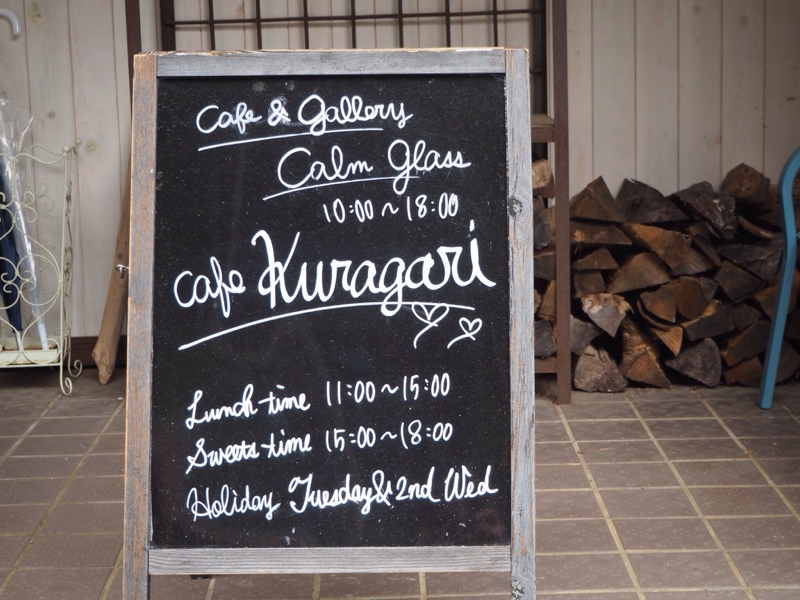 Cafe & Gallery
Calm Glass
10:00~18:00
cafe Kuragari
Lunch time 11:00~15:00
Sweets time 15:00~18:00
Holiday Tuesday & 2nd Wed